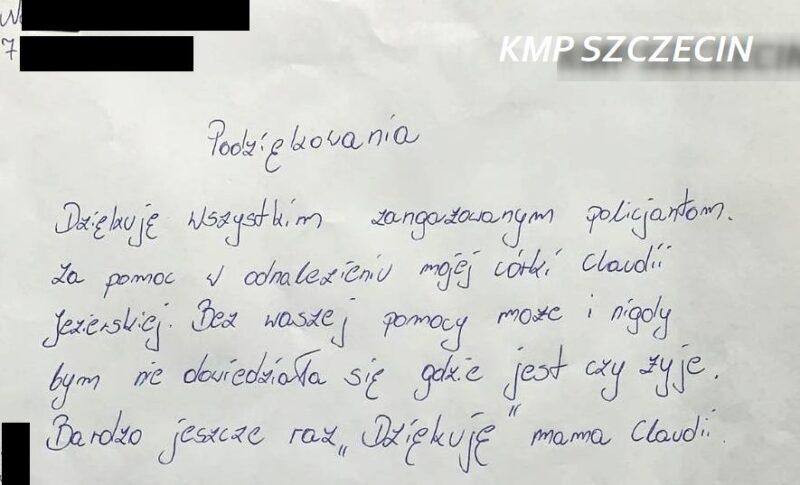 KMP SZCZECIN
7
Podziękowania
Dziękuję wszystkim zangażowanym policjantom.
Za pomoc w odnalezieniu mojej córki Claudii
Jezierskiej. Bez waszej pomocy może i nigdy
bym nie dowiedziała się gdzie jest czy żyje.
Bardzo jeszcze raz „Dziękuję" mama Claudii.